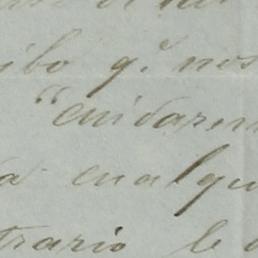 ibo q.e nos
"cuidarem
a cualqui
trario le d